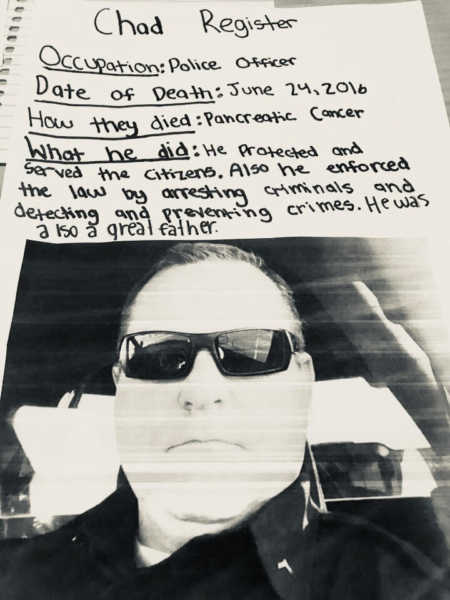 Chad Register
Occupation: Police Officer
Date of Death: June 24, 2016
How they died: Pancreatic Cancer
What he did: He protected and
served the citizens. Also he enforced
the law by arresting criminals and
detecting and preventing crimes. He was
also a great father.